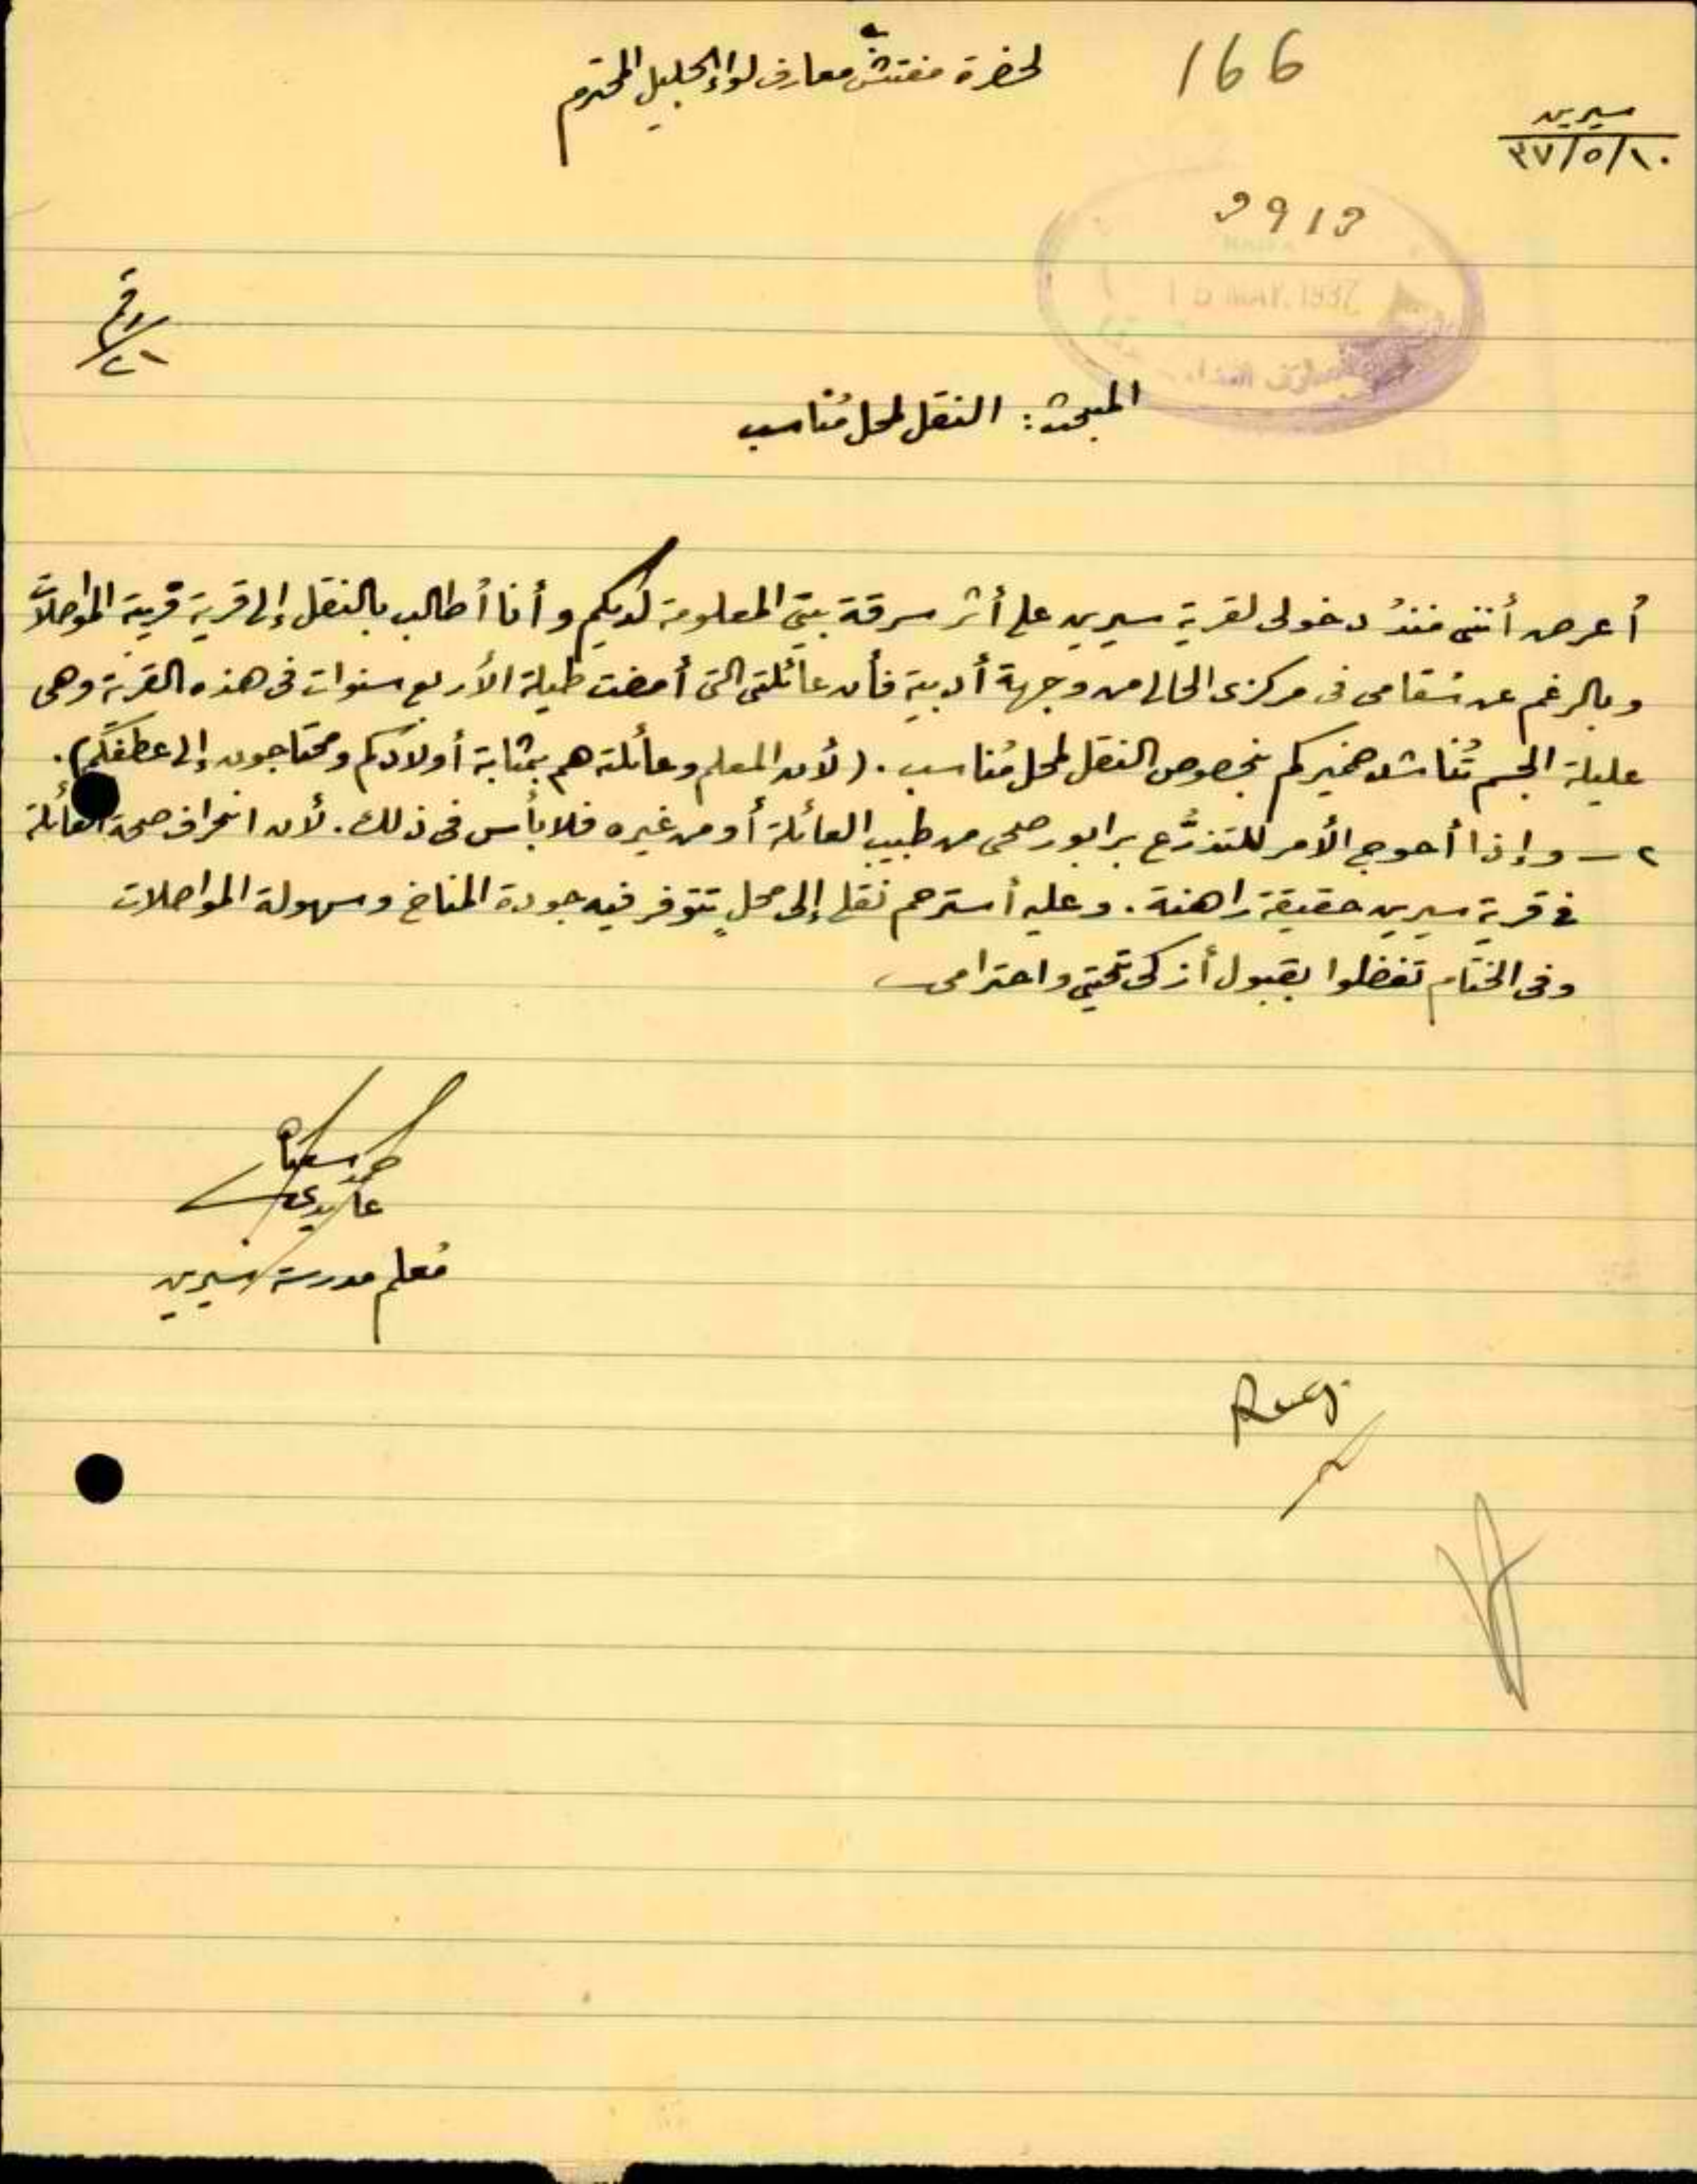 166
لحضرة مفتش معارف لواء الجليل المحترم
سيرين
١٠/٥/٣٧
3913
15 MAY. 1937
رقم
٢١
المبحث: النقل لمحل مُناسب
أعرض أنني منذُ دخولى لقرية سيرين على أثر سرقة بيتي المعلومة لديكم وأنا أُطالب بالنقل إلى قرية قريبة المواصلات
وبالرغم عن سُقامى فى مركزى الحالى من وجهة أدبية فأن عائلتى التى أمضت طيلة الأربع سنوات فى هذه القرية وهى
عليلة الجسم تُناشد ضميركم بخصوص النقل لمحل مُناسب. (لأن المعلم وعائلته هم بمثابة أولادكم ومحتاجون إلى عطفكم).
٢ـ وإذا أحوج الأمر للتذرُّع برابور صحى من طبيب العائلة أو من غيره فلا بأس فى ذلك. لأن انحراف صحة العائلة
في قرية سيرين حقيقة راهنة. وعليه أسترحم نقلى إلى محلٍ تتوفر فيه جودة المناخ وسهولة المواصلات
وفى الختام تفضلوا بقبول أزكى تحيتي واحترامى
عابدى
مُعلم مدرسة سيرين